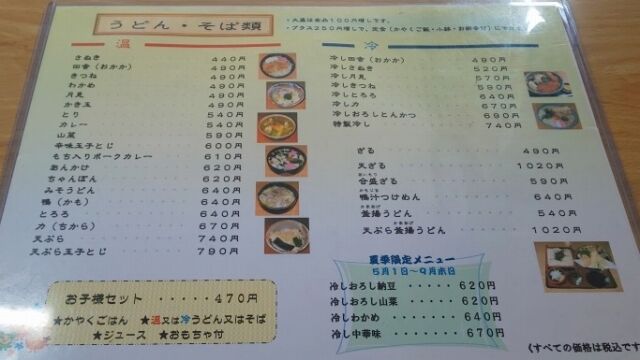 うどん・そば類
・大盛は各品100円増しです。
・プラス250円増しで、定食(かやくご飯・小鉢・お新香付)に
温
さぬき 440円
田舎(おかか) 490円
きつね 490円
わかめ 490円
月見 490円
かき玉 490円
とり 540円
カレー 540円
山菜 590円
辛味玉子とじ 600円
もち入りポークカレー 610円
あんかけ 620円
ちゃんぽん 620円
みそうどん 640円
鴨(かも) 640円
とろろ 640円
力(ちから) 670円
天ぷら 740円
天ぷら玉子とじ 790円
お子様セット ・・・・・470円
★かやくごはん ★温又は冷うどん又はそば
★ジュース ★おもちゃ付
冷
冷し田舎(おかか) 490円
冷しさぬき 520円
冷し月見 570円
冷しきつね 590円
冷しとろろ 640円
冷し力 670円
冷しおろしとんかつ 690円
特製冷し 740円
ざる 490円
天ざる 1020円
合盛ざる 590円
鴨汁つけめん 640円
釜揚うどん 540円
天ぷら釜揚うどん 1020円
夏季限定メニュー
5月1日～9月末日
冷しおろし納豆 ・・・・・620円
冷しおろし山菜 ・・・・・620円
冷しわかめ ・・・・・640円
冷し中華味 ・・・・・670円
《すべての価格は税込です